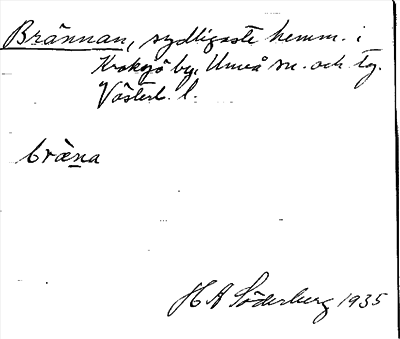 Brännan, sydligaste hemm. i
Kroksjö by, Umeå sn. och tg.
Västerb. l.
bràṉa
H A Söderberg 1935